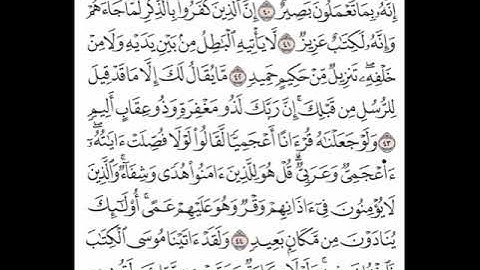 إِنَّهُۥ بِمَا تَعْمَلُونَ بَصِيرٌ ٤٠ إِنَّ ٱلَّذِينَ كَفَرُوا۟ بِٱلذِّكْرِ لَمَّا جَآءَهُمْ
وَإِنَّهُۥ لَكِتَٰبٌ عَزِيزٌ ٤١ لَّا يَأْتِيهِ ٱلْبَٰطِلُ مِنۢ بَيْنِ يَدَيْهِ وَلَا مِنْ
خَلْفِهِۦ تَنزِيلٌ مِّنْ حَكِيمٍ حَمِيدٍ ٤٢ مَّا يُقَالُ لَكَ إِلَّا مَا قَدْ قِيلَ
لِلرُّسُلِ مِن قَبْلِكَ ۚ إِنَّ رَبَّكَ لَذُو مَغْفِرَةٍ وَذُو عِقَابٍ أَلِيمٍ
٤٣ وَلَوْ جَعَلْنَٰهُ قُرْءَانًا أَعْجَمِيًّا لَّقَالُوا۟ لَوْلَا فُصِّلَتْ ءَايَٰتُهُۥٓ ۖ
ءَا۬عْجَمِىٌّ وَعَرَبِىٌّ ۗ قُلْ هُوَ لِلَّذِينَ ءَامَنُوا۟ هُدًى وَشِفَآءٌ ۖ وَٱلَّذِينَ
لَا يُؤْمِنُونَ فِىٓ ءَاذَانِهِمْ وَقْرٌ وَهُوَ عَلَيْهِمْ عَمًى ۚ أُو۟لَٰٓئِكَ
يُنَادَوْنَ مِن مَّكَانٍۭ بَعِيدٍ ٤٤ وَلَقَدْ ءَاتَيْنَا مُوسَى ٱلْكِتَٰبَ